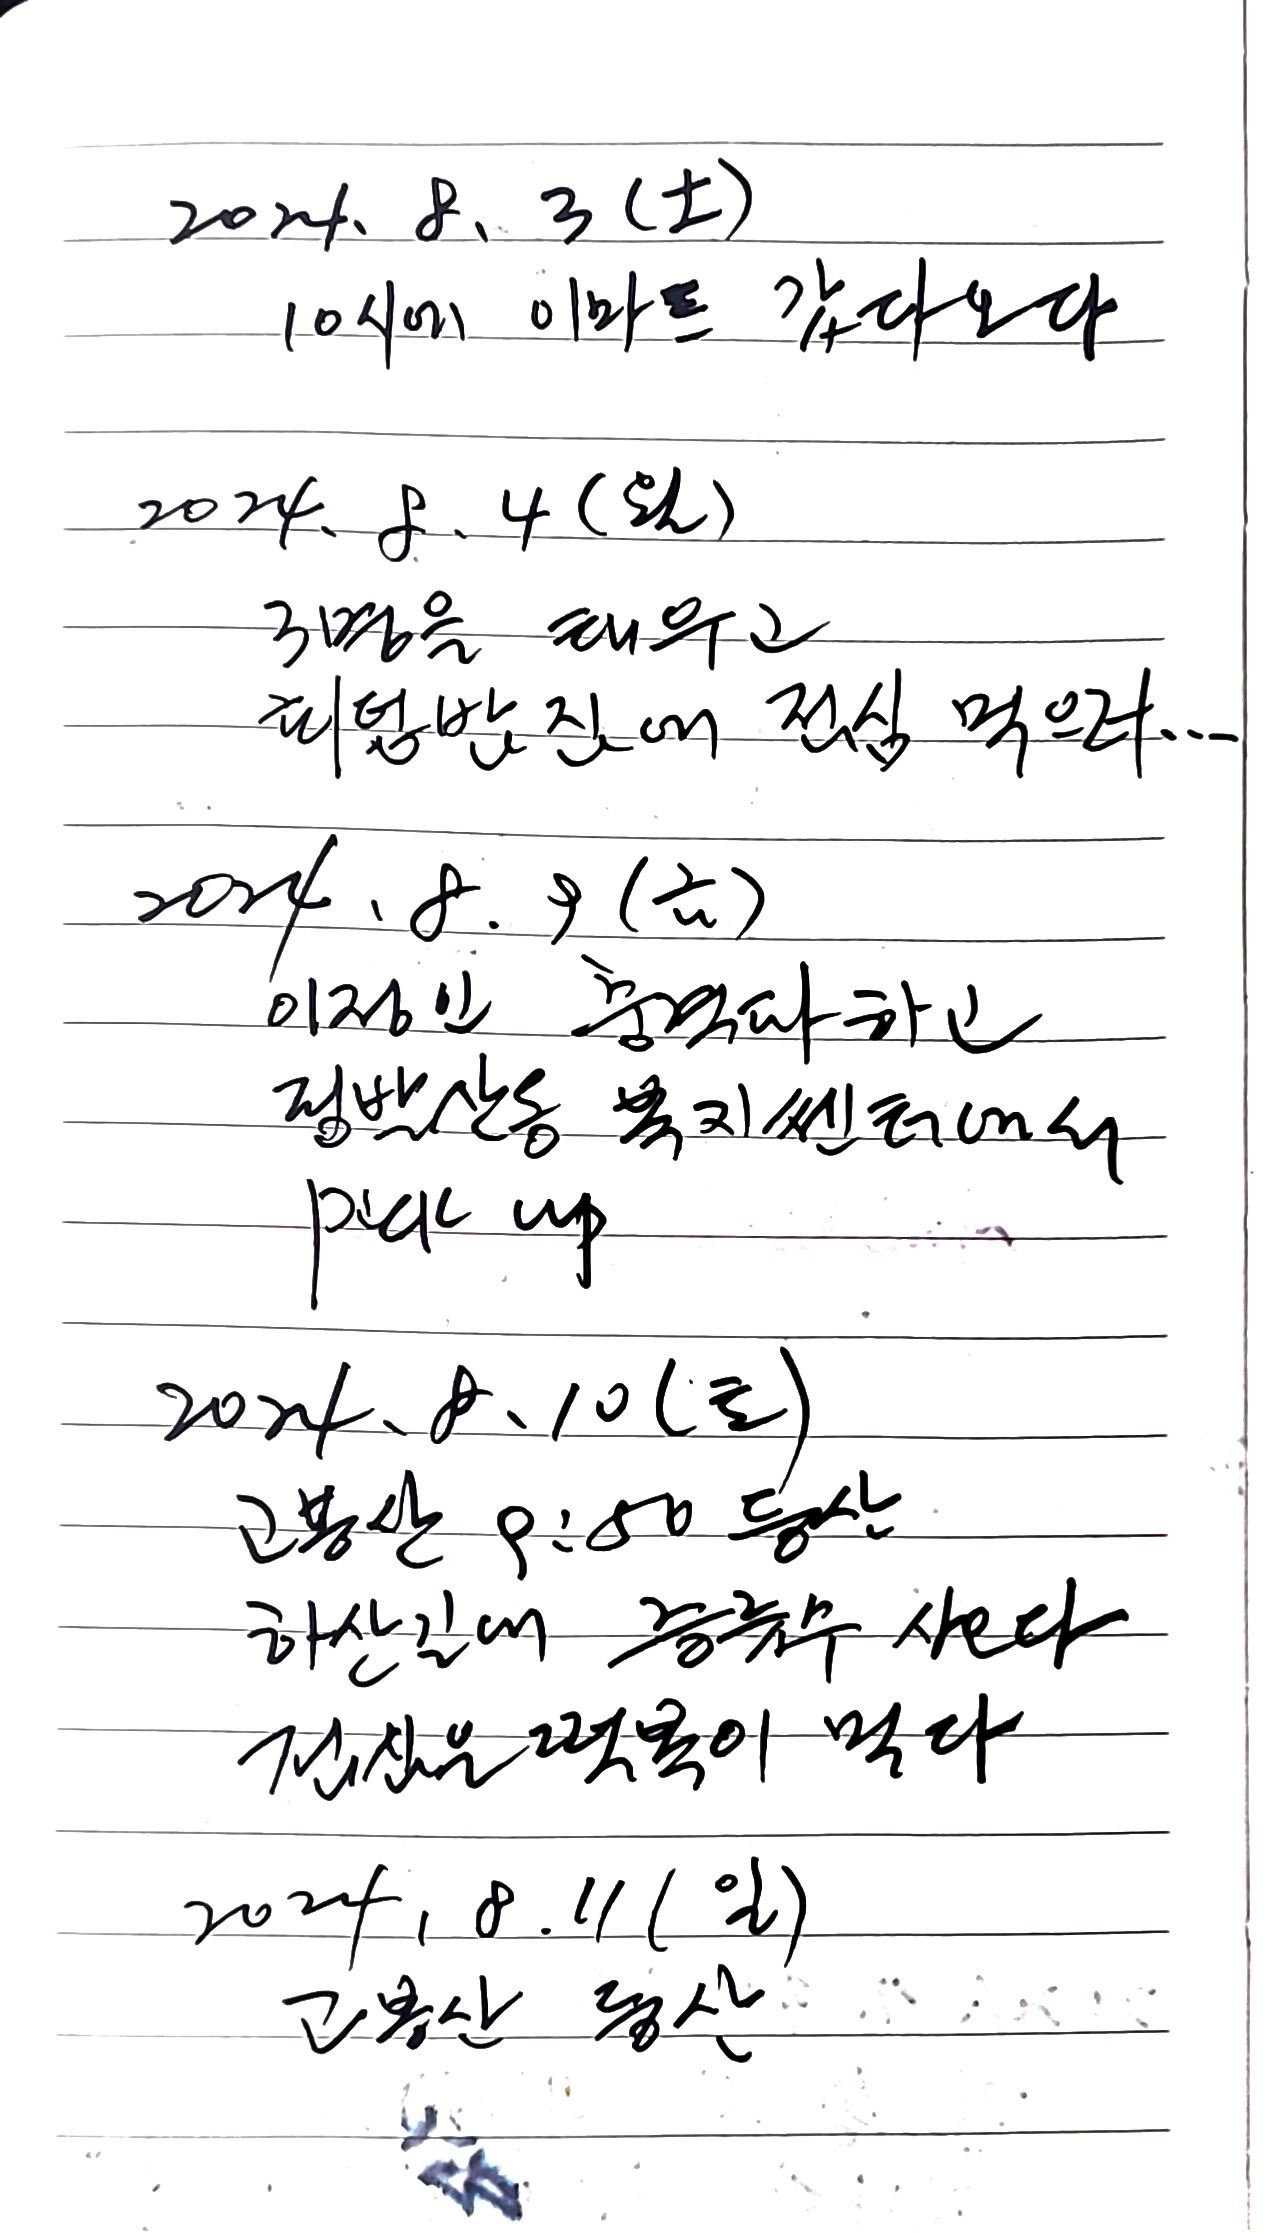 2024. 8. 3 (土)
10시에 이마트 갔다오다
2024. 8. 4 (월)
3명을 태우고
점심 먹으러...
2024. 8. 9 (금)
이정민 하고
정발산동 복지쎈터에서
pick up
2024. 8. 10 (토)
고봉산 9:50 등산
하산길에 증류수 사오다
점심은 떡볶이 먹다
2024. 8. 11 (일)
고봉산 등산